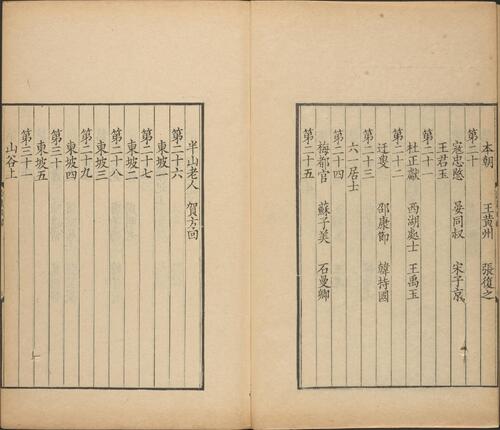 本朝 王黄州 張復之
第二十
寇忠愍 晏同叔 宋子京
王君玉
第二十一
杜正獻 西湖處士 王禹玉
第二十二
迂叟 邵康節 韓持國
第二十三
六一居士
第二十四
梅都官 蘇子美 石曼卿
第二十五
半山老人 賀方回
第二十六
東坡一
第二十七
東坡二
第二十八
東坡三
第二十九
東坡四
第三十
東坡五
第三十一
山谷上